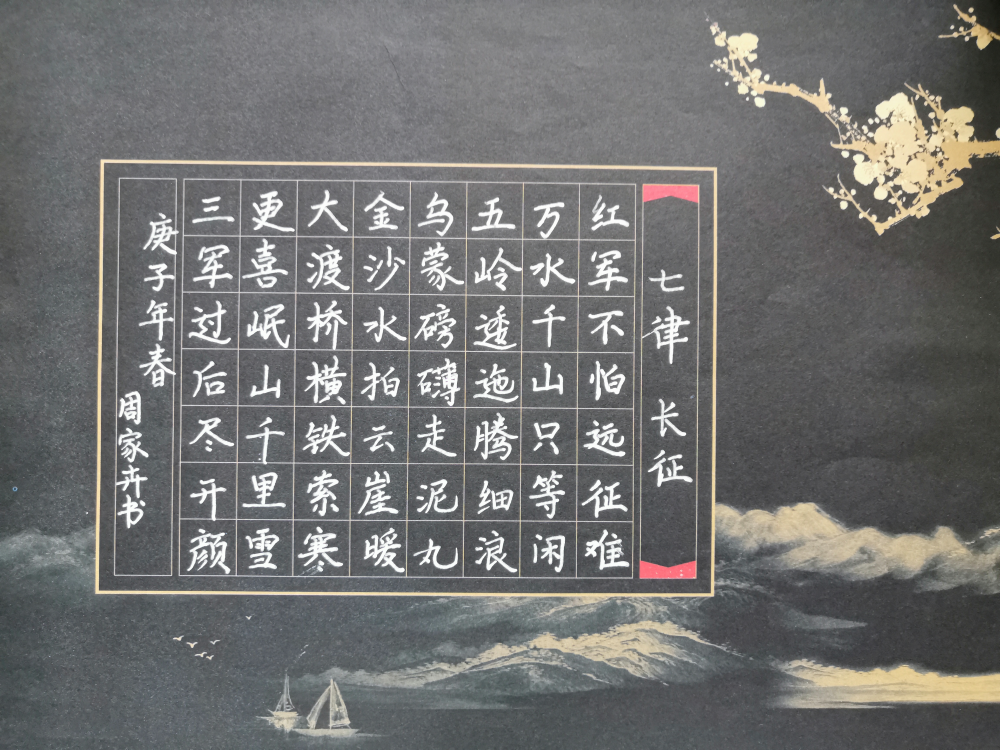 七律 长征
红军不怕远征难
万水千山只等闲
五岭逶迤腾细浪
乌蒙磅礴走泥丸
金沙水拍云崖暖
大渡桥横铁索寒
更喜岷山千里雪
三军过后尽开颜
庚子年春
周家卉书